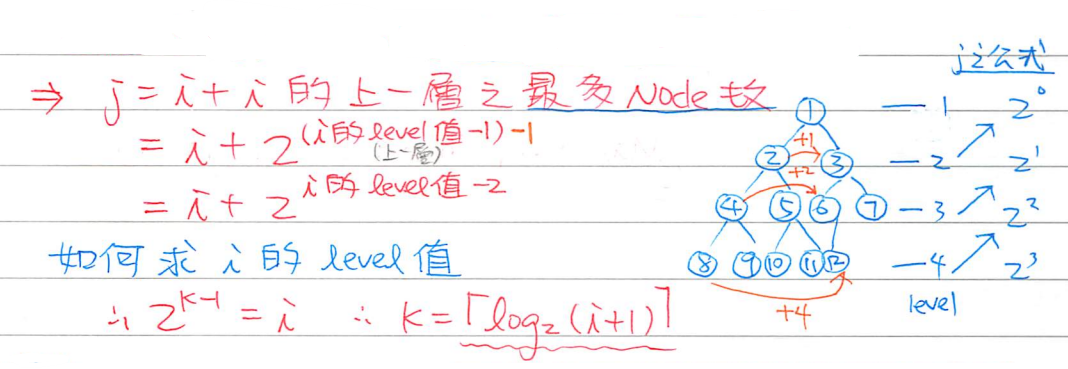 ⇒ j = i + i 的上一層之最多 Node 數
= i + 2^(i的level值-1)-1
(上一層)
= i + 2^i的level值-2
如何求 i 的 level值
∴ 2^k-1 = i ∴ k = ⌈log₂(i+1)⌉
j之公式
1
2 +1 3
+2
4 5 6 7
8 9 10 11 12
+4
1 2^0
2 2^1
3 2^2
4 2^3
level